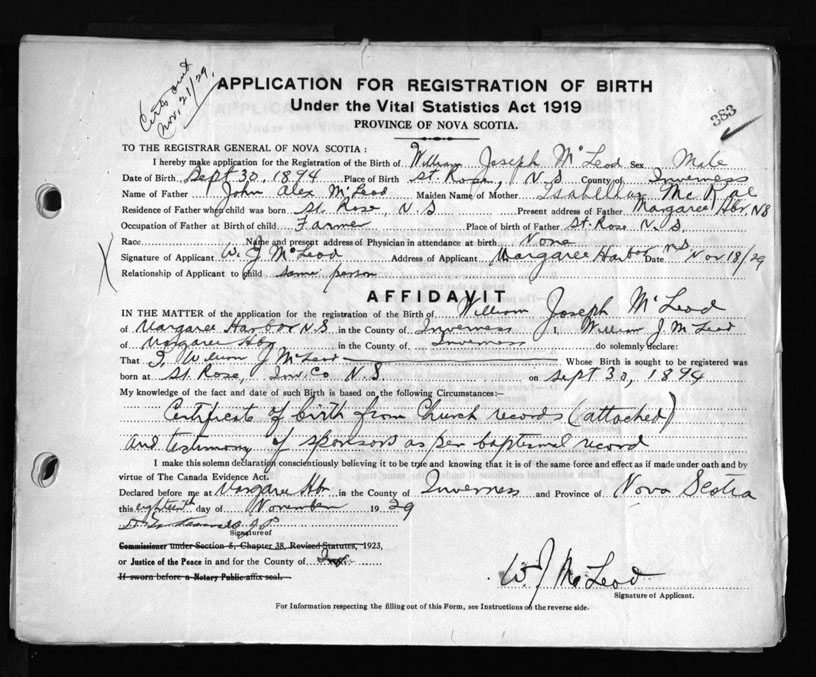 Certs out
Nov. 21/29.
APPLICATION FOR REGISTRATION OF BIRTH
Under the Vital Statistics Act 1919
PROVINCE OF NOVA SCOTIA.
383
TO THE REGISTRAR GENERAL OF NOVA SCOTIA:
I hereby make application for the Registration of the Birth of William Joseph McLeod Sex Male
Date of Birth Sept 30, 1894 Place of Birth St. Rose, N S County of Inverness
Name of Father John Alex McLeod Maiden Name of Mother Isabella
Residence of Father when child was born St. Rose, N. S Present address of Father Margaree Hbr. N S
Occupation of Father at Birth of child Farmer Place of birth of Father St. Rose N. S
Race Name and present address of Physician in attendance at birth None
Signature of Applicant W. J McLeod Address of Applicant Margaree Harbor N S Date Nov 18/29
Relationship of Applicant to child same person
AFFIDAVIT
IN THE MATTER of the application for the registration of the Birth of William Joseph McLeod
of Margaree Harbor N. S in the County of Inverness I, William J. McLeod
of Margaree Hbr in the County of Inverness do solemnly declare:
That I, William J McLeod Whose Birth is sought to be registered was
born at St. Rose, Inv. Co N. S. on Sept 30, 1894
My knowledge of the fact and date of such Birth is based on the following Circumstances:—
Certificate of birth from Church records (attached)
and testimony of sponsors as per baptismal record
I make this solemn declaration conscientiously believing it to be true and knowing that it is of the same force and effect as if made under oath and by
virtue of The Canada Evidence Act.
Declared before me at Margaree Hbr in the County of Inverness and Province of Nova Scotia
this eighteenth day of November 1929
J. P.
Signature of
Commissioner under Section 5, Chapter 38, Revised Statutes, 1923,
or Justice of the Peace in and for the County of Inv.
If sworn before a Notary Public affix seal.
W. J McLeod
Signature of Applicant.
For Information respecting the filling out of this Form, see Instructions on the reverse side.